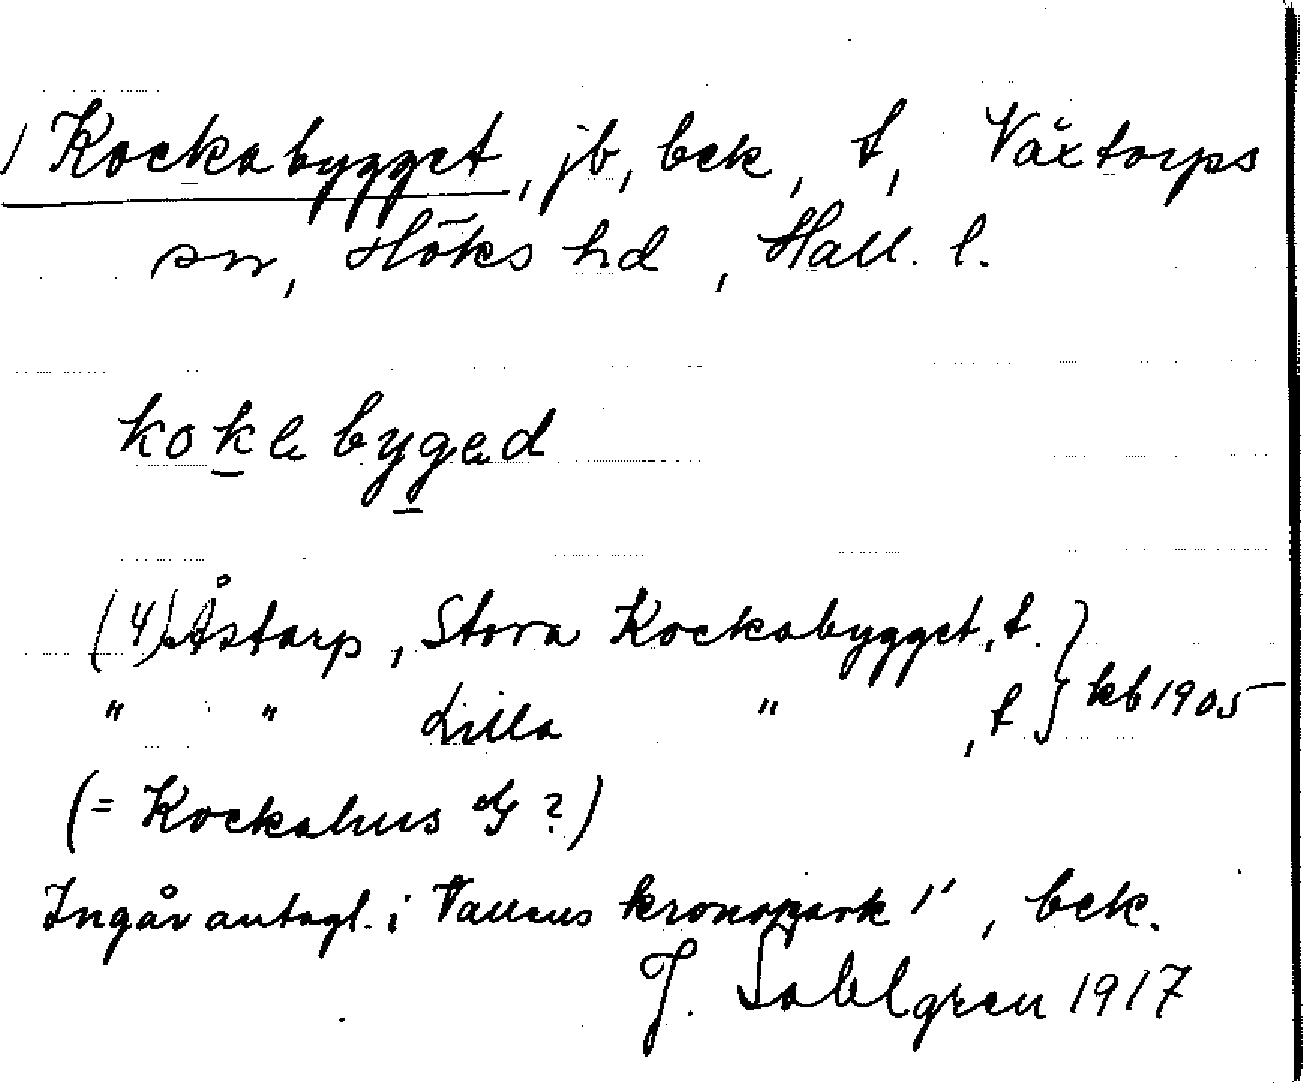 / Kockabygget, jb, bek, t, Växtorps
sn, Höks hd, Hall. l.
kokabygəd
(4) Åstarp, Stora Kockabygget, t. }
" " Lilla " , t } kb 1905
(= Kockahus G ?)
Ingår antagl. i Vallens kronopark 1', bek.
J. Sahlgren 1917